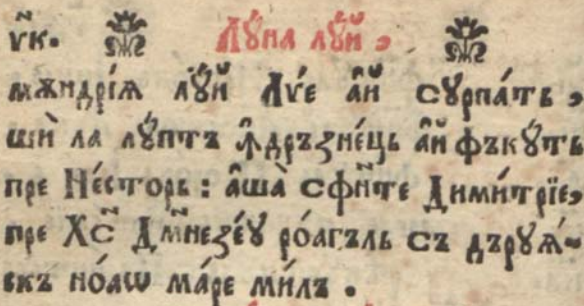 у҃к. Лꙋна лꙋй,
мѫндрі́ѧ лꙋ́й Лѵ́е а҆́й сꙋрпа́тъ,
шѝ ла лꙋ́птъ ꙟ҆дръзне́ць а҆́й фъкꙋ́тъ
пре Не́сторь: а҆ша̀ сфи҃те Дими́трїе,
пре Хс҃ Дм҃незе́ꙋ ро́агъль съ дърꙋѧ́-
скъ но́аѡ ма́ре ми́лъ.